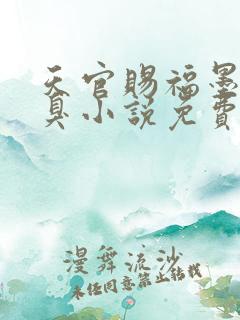 天官賜福墨
真小說免費
漫舞流沙
未经同意禁止转载